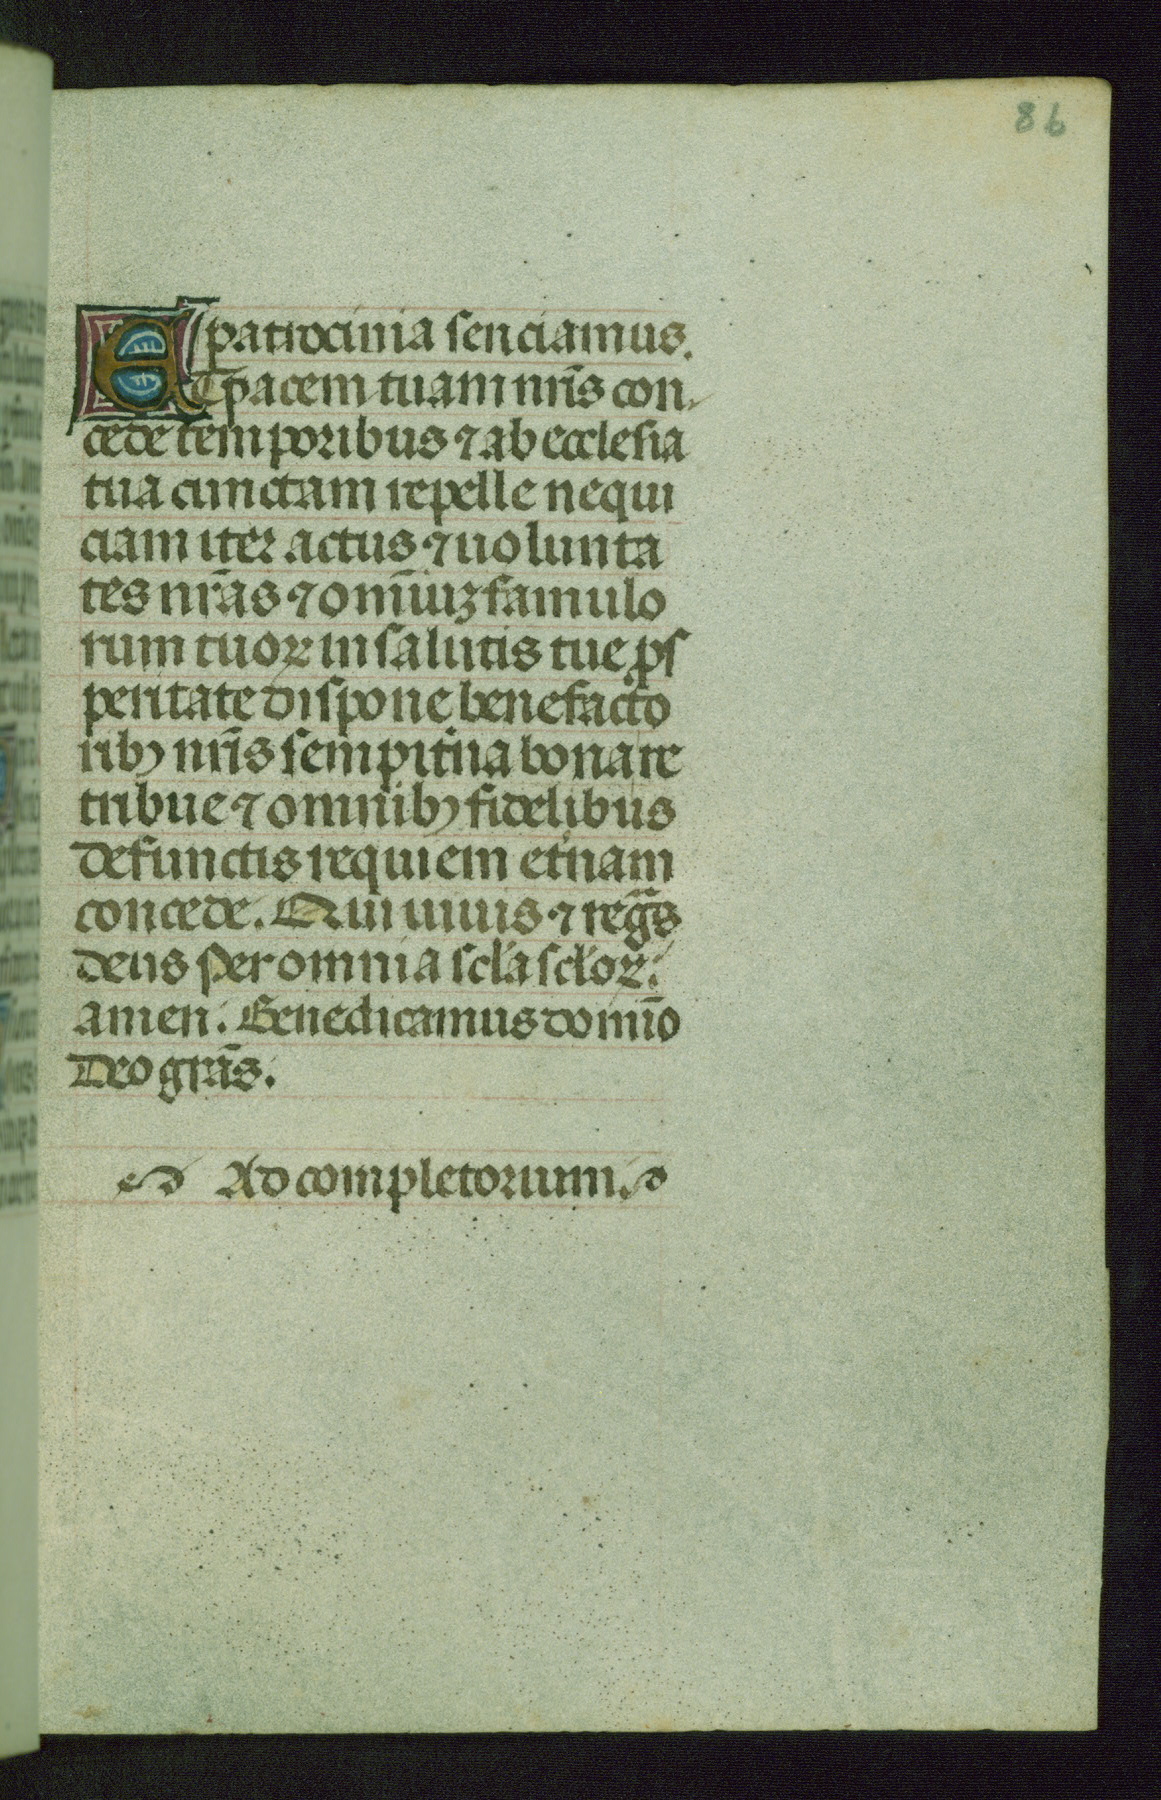 86
patrocinia senciamus.
ET pacem tuam nr̄is con-
cede temporibus ⁊ ab ecclesia
tua cunctam repelle nequi
ciam iter actus ⁊ uolunta
tes nr̄as ⁊ om̄iuꝫ famulo
rum tuoꝝ in salutis tue ꝓs
peritate dispone benefacto
ribꝫ nr̄is sempit̾na bona re
tribue ⁊ omnibꝫ fidelibus
defunctis requiem et̾nam
concede. Qui uiuis ⁊ regs̄
deus Per omnia scl̄a scl̄oꝝ.
amen. Benedicamus domīo
Deo grās.
Ad completorium.